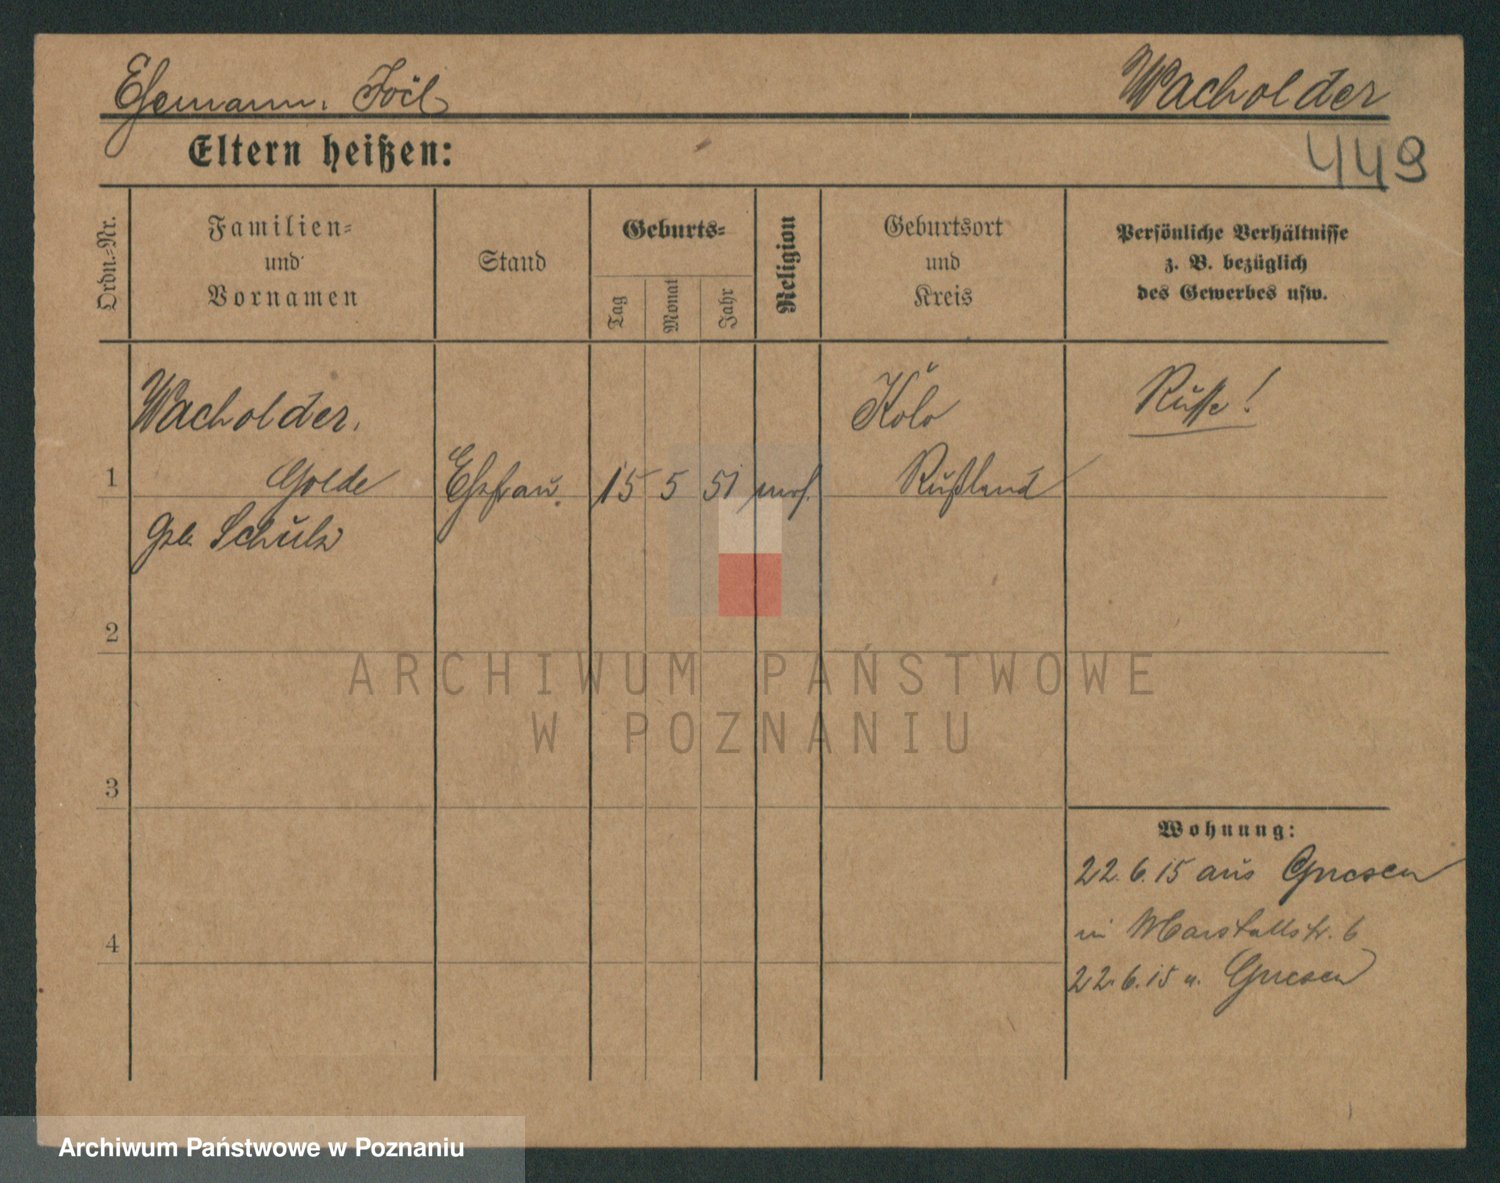 Ehemann: Joël
Wacholder
Eltern heißen:
449
Ordn.-Nr.
Familien-
und
Vornamen
Stand
Geburts-
Tag
Monat
Jahr
Religion
Geburtsort
und
Kreis
Persönliche Verhältnisse
z. B. bezüglich
des Gewerbes usw.
Wacholder,
Kolo
Russe!
1
Golde
Ehefrau.
15
5
51
mos.
Rußland
geb. Schulz
2
ARCHIWUM PAŃSTWOWE
W POZNANIU
3
Wohnung:
22.6.15 aus Gnesen
in Marstallstr. 6
4
22.6.15 n. Gnesen
Archiwum Państwowe w Poznaniu